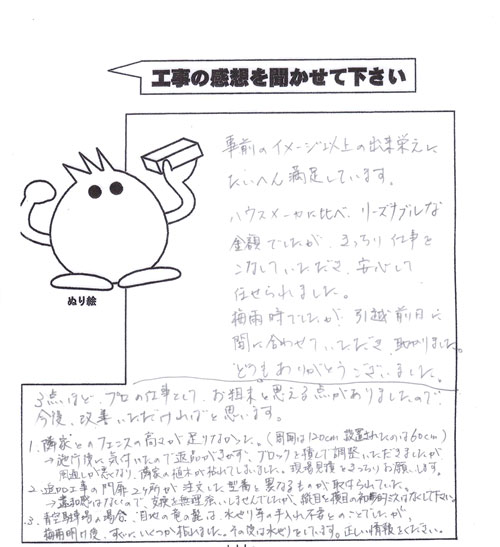 工事の感想を聞かせて下さい
事前のイメージ以上の出来栄えに
たいへん満足しています。
ハウスメーカーに比べ、リーズナブルな
金額でしたが、きっちり仕事を
こなしていただき、安心して
任せられました。
梅雨時でしたが、引越前日に
間に合わせていただき、助かりました。
どうもありがとうございました。
ぬり絵
3点ほど、プロの仕事として、お粗末と思える点がありましたので
今後、改善いただければと思います。
1. 隣家とのフェンスの高さが足りなかった。(周囲は120cm 設置されたのは60cm)
→施行後に気付いたので返品ができず、ブロックを増して調整いただきましたが
風通しが悪くなり、隣家の植木が枯れてしまいました。現場見積をきっちりお願いします。
2. 追加工事の門扉2ヶ所が注文した型番と異なるものが取付られていた。
→違和感はなくて、交換を無理強いしませんでしたが、
3. 青空駐車場の場合、目地の竜の髭は、水やり等の手入れ不要とのことでしたが、
梅雨明け後、すぐにいくつか枯れました。その後は水やりをしています。正しい情報をください。